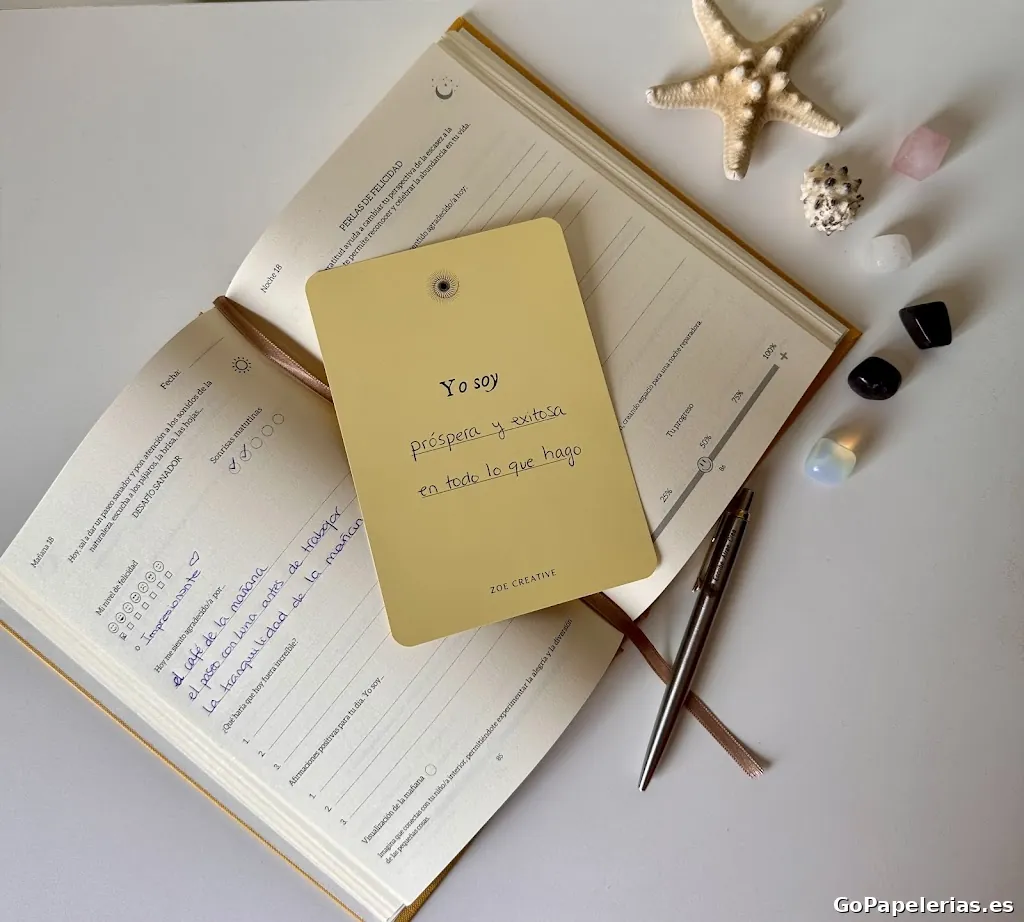 PERLAS DE FELICIDAD
ratitud ayuda a cambiar tu perspectiva de la escasez a la
te permite reconocer y celebrar la abundancia en tu vida.
Noche 18
agradecido/a hoy:
creando espacio para una noche reparadora
Tu progreso
25%
50%
75%
100%
86
Yo soy
próspera y exitosa
en todo lo que hago
ZOE CREATIVE
Fecha:
Mañana 18
Hoy, sal a dar un paseo sanador y pon atención a los sonidos de la
naturaleza, escucha a los pájaros, la brisa, las hojas...
DESAFÍO SANADOR
Sonrisas matutinas
Mi nivel de felicidad
Impresionante
Hoy me siento agradecido/a por...
el café de la mañana
el paseo con luna antes de trabajar
la tranquilidad de la mañana
¿Qué haría que hoy fuera increíble?
1.
2.
3.
Afirmaciones positivas para tu día. Yo soy...
1.
2.
3.
Visualización de la mañana
Imagina que conectas con tu niño/a interior, permitiéndote experimentar la alegría y la diversión
de las pequeñas cosas.
85
GoPapelerias.es